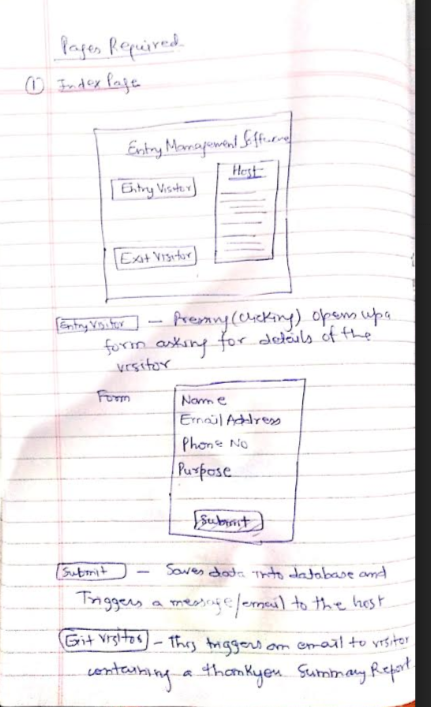 Pages Required
① Index Page
Entry Management Software
Host
Entry Visitor
Exit Visitor
Entry Visitor — Pressing (clicking) opens up a
form asking for details of the
visitor
Form
Name
Email Address
Phone No
Purpose
Submit
Submit — Saves data into database and
Triggers a message/email to the host
Exit visitor - This triggers an email to visitor
containing a thankyou Summary Report